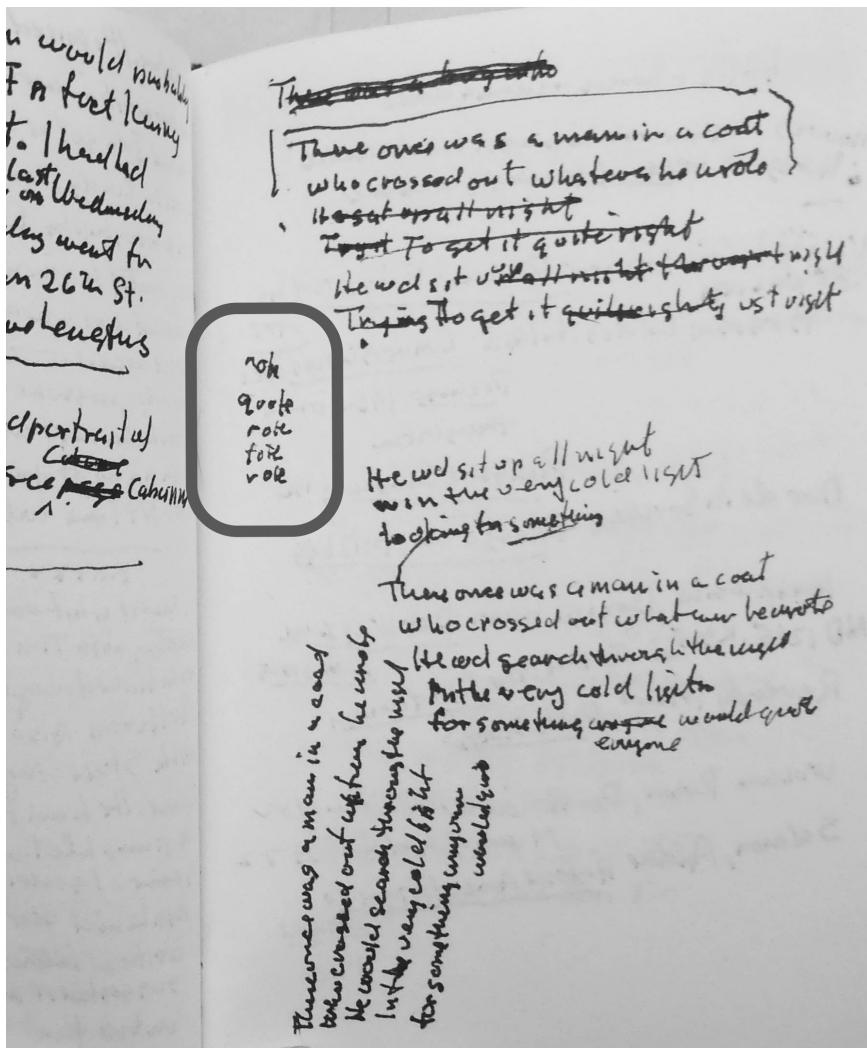 would probably
I a fact / Kenny
t. I had had
last Wednesday
day went to
26th St.
d portrait of
Cabinn
There was a boy who
There once was a man in a coat
who crossed out whatever he wrote
He sat up all night
To get it quite right
He wd sit up all night night
Trying To get it quite right just right
note
quote
rote
tote
role
He wd sit up all night
in the very cold light
looking for something
There once was a man in a coat
who crossed out whatever he wrote
He wd search through the night
In the very cold light
for something anyone would quote
everyone
There once was a man in a coat
who crossed out whatever he wrote
He would search through the night
In the very cold light
for something anyone
would quote